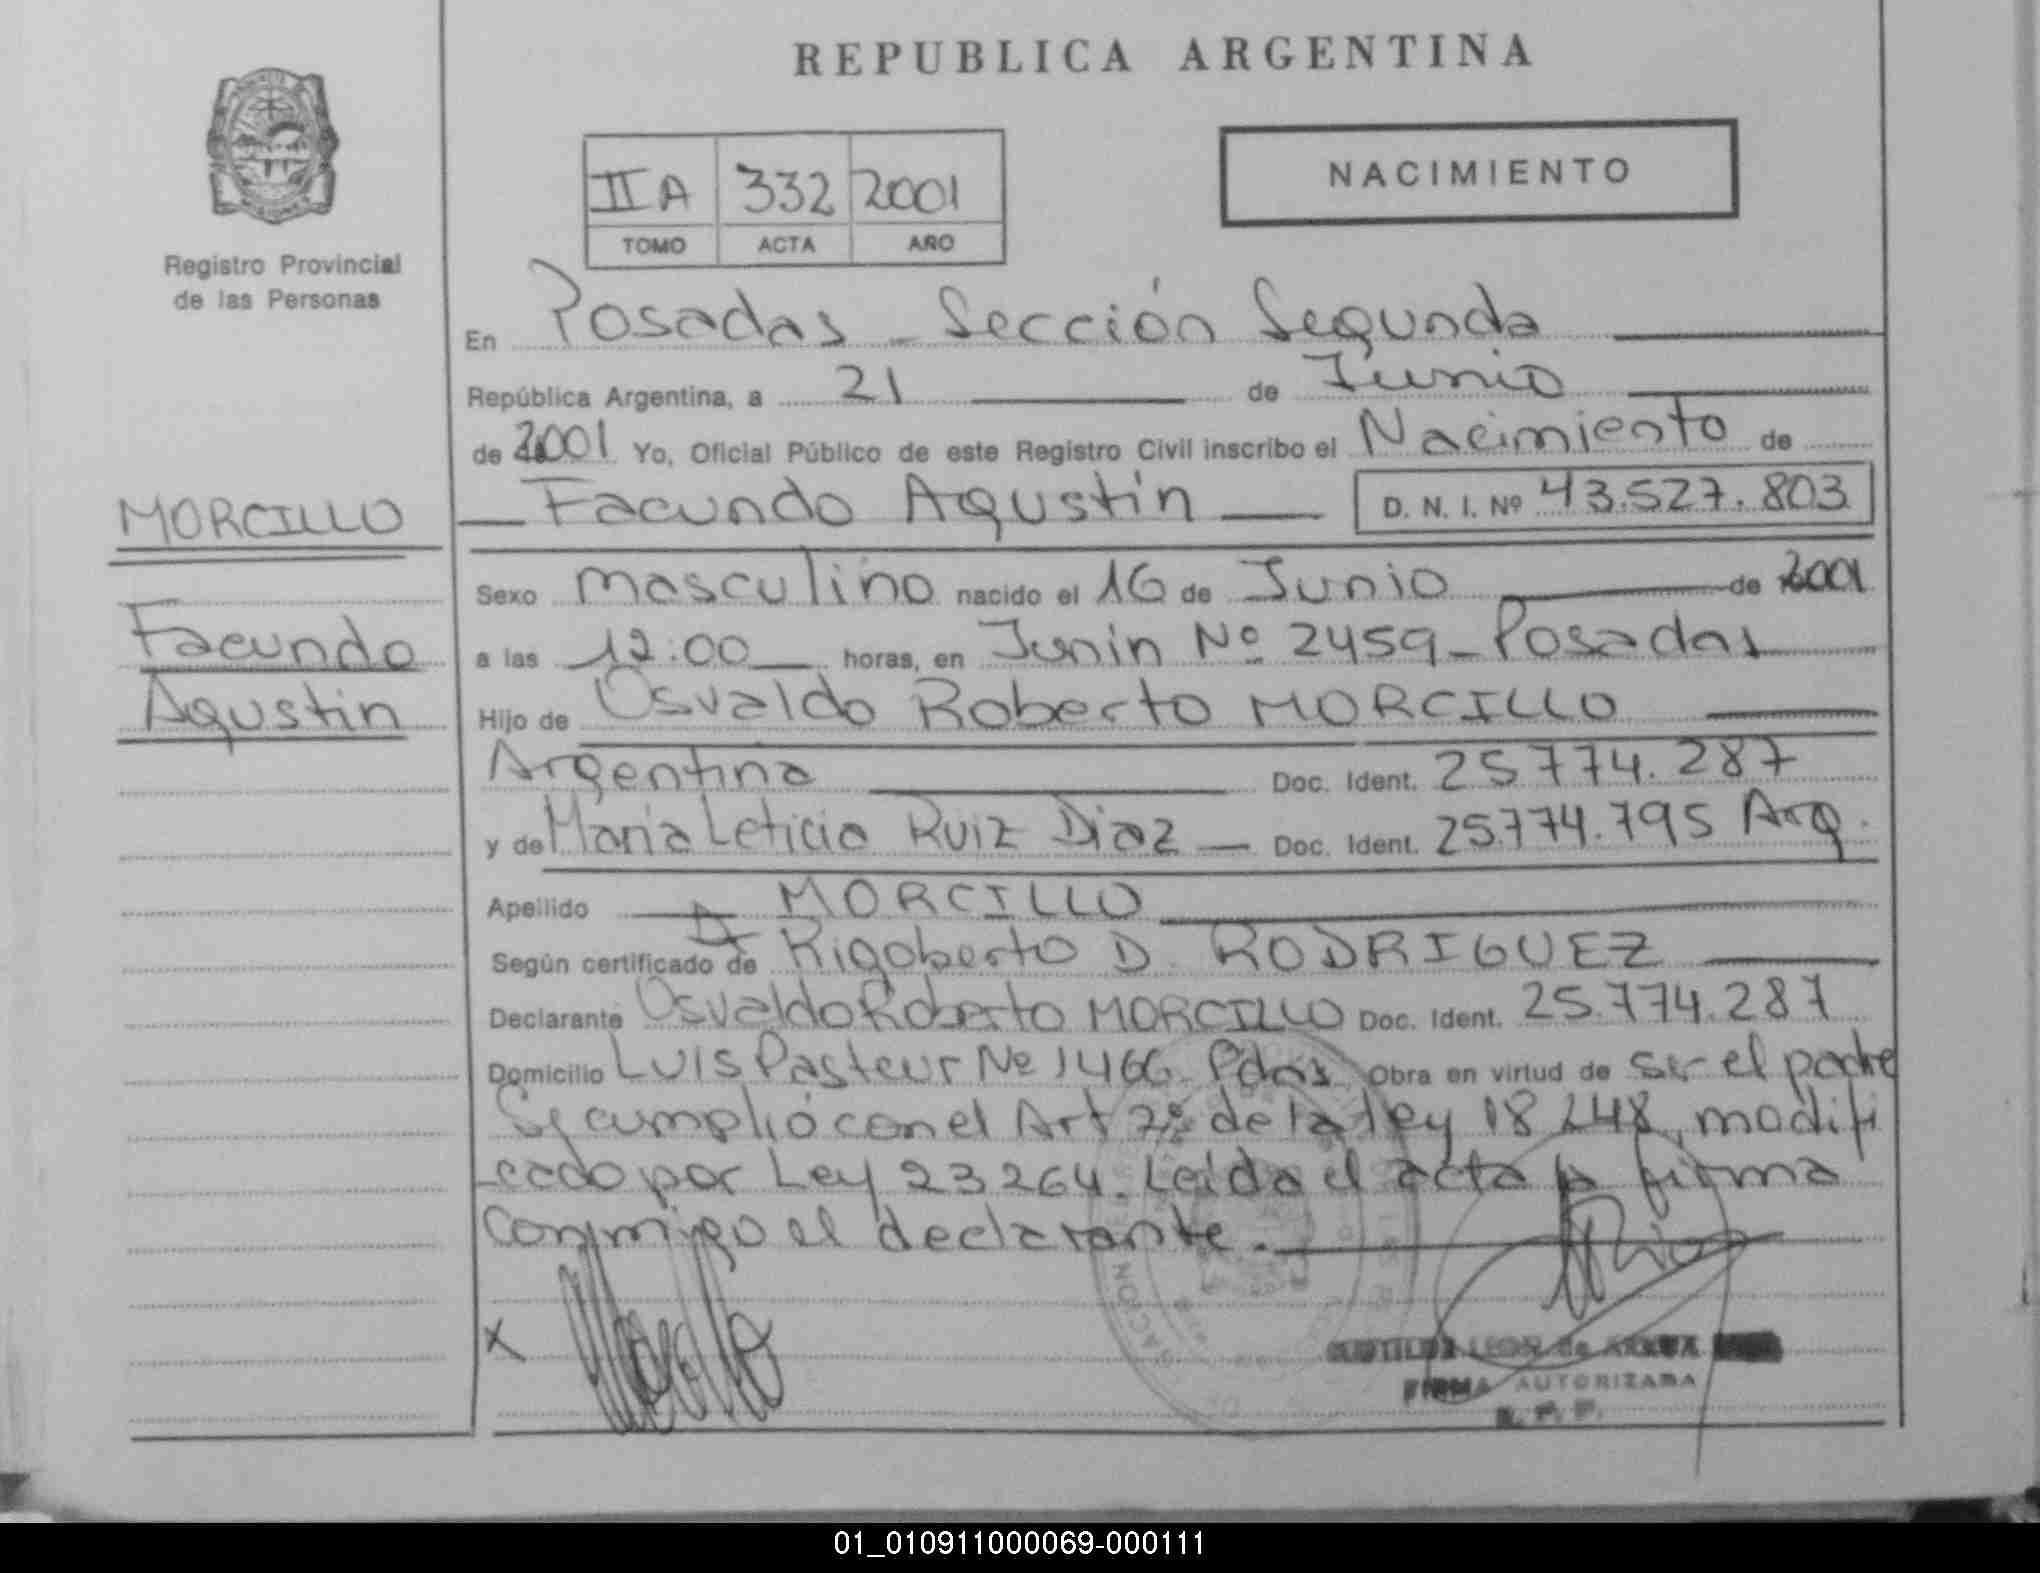 REPUBLICA ARGENTINA
NACIMIENTO
IIA 332 2001
TOMO ACTA AÑO
Registro Provincial
de las Personas
En Posadas - Sección Segunda
República Argentina, a 21 de Junio
de 2001 Yo, Oficial Público de este Registro Civil inscribo el Nacimiento de
Facundo Agustín D. N. I. Nº 43.527.803
MORCILLO
Facundo
Agustin
Sexo masculino nacido el 16 de Junio de 2001
a las 12:00 horas, en Junin Nº 2459 - Posadas
Hijo de Osvaldo Roberto MORCILLO
Argentina Doc. Ident. 25774.287
y de Maria Leticia Ruiz Diaz Doc. Ident. 25774.795 Arg.
Apellido MORCILLO
Según certificado de Rigoberto D. RODRIGUEZ
Declarante Osvaldo Roberto MORCILLO Doc. Ident. 25.774.287
Domicilio Luis Pasteur Nº 1466 Pdas Obra en virtud de ser el padre
Se cumplió con el Art 2º de la ley 18248, modifi
cado por Ley 23264. Leida el acta la firma
conmigo el declarante.
X
LEON de
FIRMA AUTORIZADA
R. P. P.
01_010911000069-000111